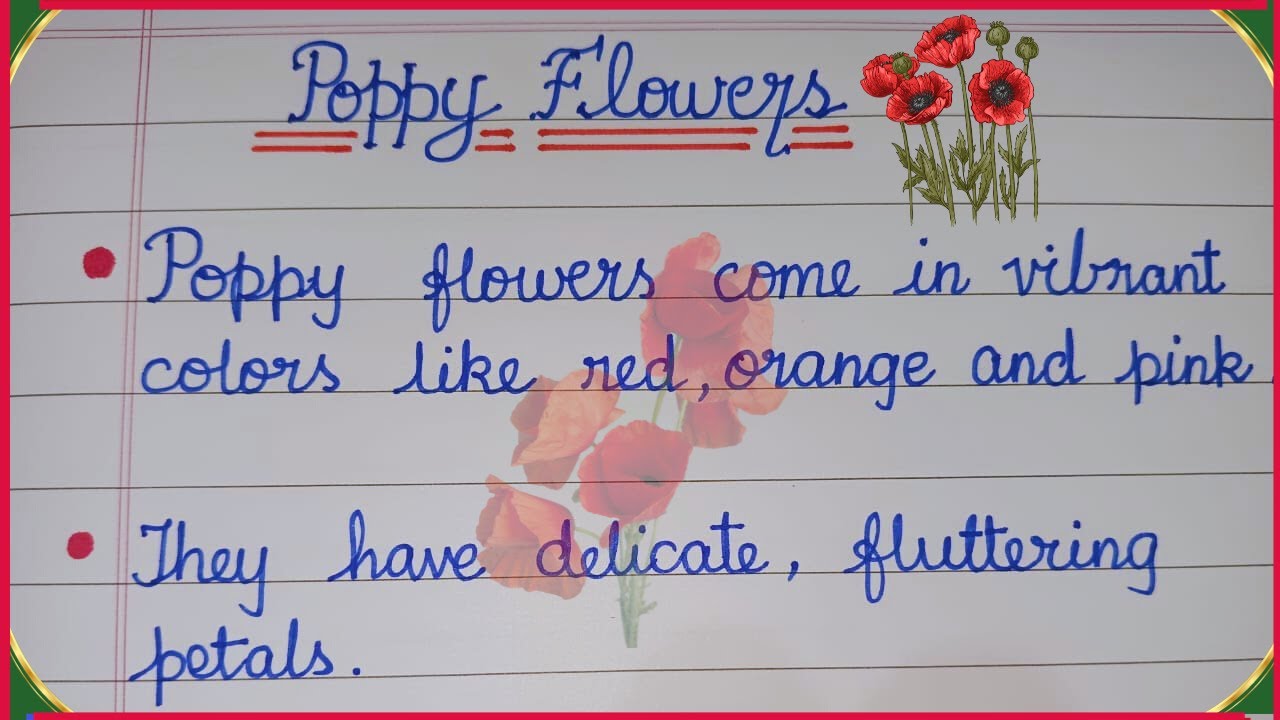 Poppy Flowers
Poppy flowers come in vibrant
colors like red, orange and pink.
They have delicate, fluttering
petals.